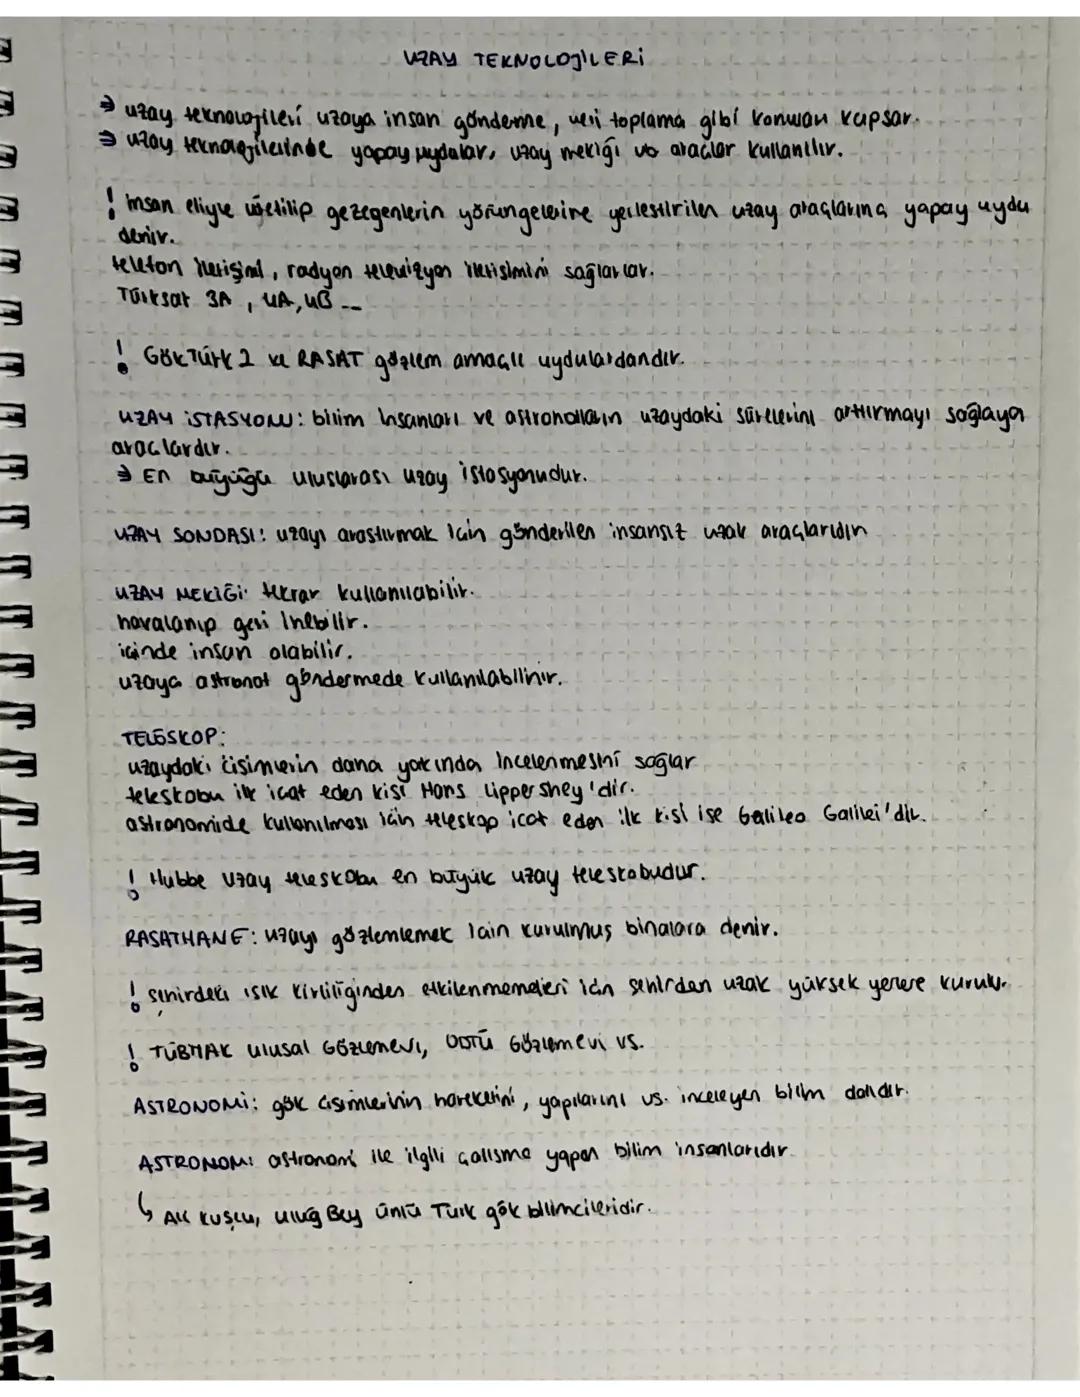 UZAY TEKNOLOJİLERİ
→ uzay teknolojileri uzaya insan gönderme, veri toplama gibi konuları kapsar.
→ uzay teknolojilerinde yapay uydular, uzay mekiği vb araçlar kullanılır.
! insan eliyle üretilip gezegenlerin yörüngelerine yerleştirilen uzay araçlarına yapay uydu
denir.
telefon iletişimi, radyon televizyon iletisimini sağlarlar.
Türksat 3A, 4A, 4B --
! GÖKTÜRK 2 ve RASAT gözlem amaçlı uydulardandır.
UZAY İSTASYONU: bilim insanları ve astronotların uzaydaki sürelerini arttırmayı sağlaya
araçlardır.
→ En büyüğü uluslarası uzay istasyonudur.
UZAY SONDASI: uzayı arastırmak için gönderilen insansız uzak araçlarıdın
UZAY MEKİĞİ: tekrar kullanılabilir.
havalanıp geri inebilir.
içinde insan olabilir.
uzaya astronot göndermede kullanılabilinir.
TELESKOP:
uzaydaki cisimlerin daha yakında incelenmesini sağlar
teleskobu ilk icat eden kisi Hans Lippershey'dir.
astronomide kullanılması için teleskop icat eden ilk kisi ise Galileo Galilei'dir.
! Hubbe Uzay teleskobu en büyük uzay teleskobudur.
RASATHANE: uzayı gözlemlemek için kurulmuş binalara denir.
! şehirdeki ısık kirliliğinden etkilenmemeleri için sehirden uzak yüksek yerlere kurulur.
! TÜBİTAK Ulusal Gözlemevi, ODTÜ Gözlemevi vs.
ASTRONOMİ: gök cisimlerinin hareketini, yapılarını vs. inceleyen bilim dalıdır.
ASTRONOM: astronomi ile ilgili çalısma yapan bilim insanlarıdır.
↳ Ali Kuşcu, Uluğ Bey ünlü Türk gök bilimcileridir.